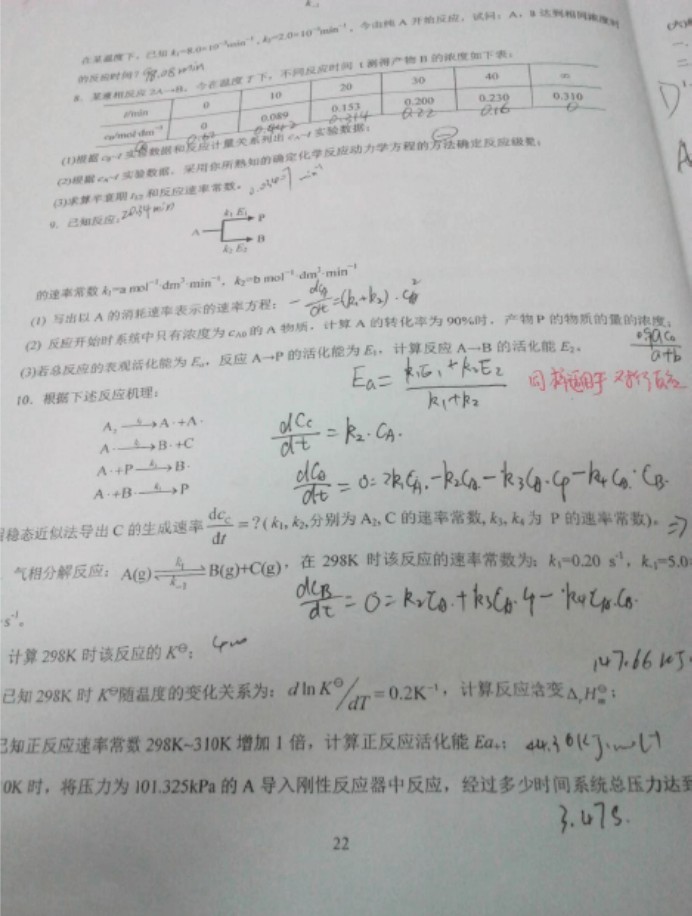 k₋₁
在某温度下，已知 k₁=8.0×10⁻³min⁻¹，k₋₁=2.0×10⁻³min⁻¹，今由纯 A 开始反应，试问：A、B 达到相同浓度时
的反应时间？ 98.08min
8. 某液相反应 2A→B，今在温度 T 下，不同反应时间 t 测得产物 B 的浓度如下表：
t/min 0 10 20 30 40 ∞
c_B/mol·dm⁻³ 0 0.089 0.153 0.200 0.230 0.310
0.22 0.16 0
(1)根据 c_B~t 实验数据和反应计量关系列出 c_A~t 实验数据；
(2)根据 c_A~t 实验数据，采用你所熟知的确定化学反应动力学方程的方法确定反应级数；
(3)求算半衰期 t₁/₂ 和反应速率常数。 min⁻¹
9. 已知反应： 20.34min
k₁ E₁ P
A
k₂ E₂ B
的速率常数 k₁=a mol⁻¹·dm³·min⁻¹，k₂=b mol⁻¹·dm³·min⁻¹
(1) 写出以 A 的消耗速率表示的速率方程： −dc_A/dt=(k₁+k₂)·c_A²
(2) 反应开始时系统中只有浓度为 c_A0 的 A 物质，计算 A 的转化率为 90%时，产物 P 的物质的量的浓度； 0.9ac₀/a+b
(3)若总反应的表观活化能为 Eₐ，反应 A→P 的活化能为 E₁，计算反应 A→B 的活化能 E₂。
Ea= k₁E₁+k₂E₂/k₁+k₂ 同样适用于对行反应
10. 根据下述反应机理：
A₂ —k₁→ A·+A·
A· —k₂→ B·+C
A·+P —k₃→ B·
A·+B· —k₄→ P
dCc/dt = k₂·C_A·
dC_A/dt = 0 = 2k₁C_A₂−k₂C_A−k₃C_A·Cp−k₄C_A·C_B·
稳态近似法导出 C 的生成速率 dc_C/dt =？( k₁, k₂,分别为 A₂, C 的速率常数, k₃, k₄ 为 P 的速率常数)。 ⇒
气相分解反应： A(g) ⇌ B(g)+C(g)，在 298K 时该反应的速率常数为：k₁=0.20 s⁻¹，k₋₁=5.0
k₁
k₋₁
dC_B/dt = 0 = k₂C_A·+k₃C_A·Cp − k₄C_A·C_B·
s⁻¹。
计算 298K 时该反应的 K^⊖；
147.66 kJ·
已知 298K 时 K^⊖随温度的变化关系为：d ln K^⊖/dT=0.2K⁻¹，计算反应焓变 ΔᵣHₘ^⊖；
已知正反应速率常数 298K~310K 增加 1 倍，计算正反应活化能 Ea₊； 44.36kJ·mol⁻¹
0K 时，将压力为 101.325kPa 的 A 导入刚性反应器中反应，经过多少时间系统总压力达到
3.47s.
22